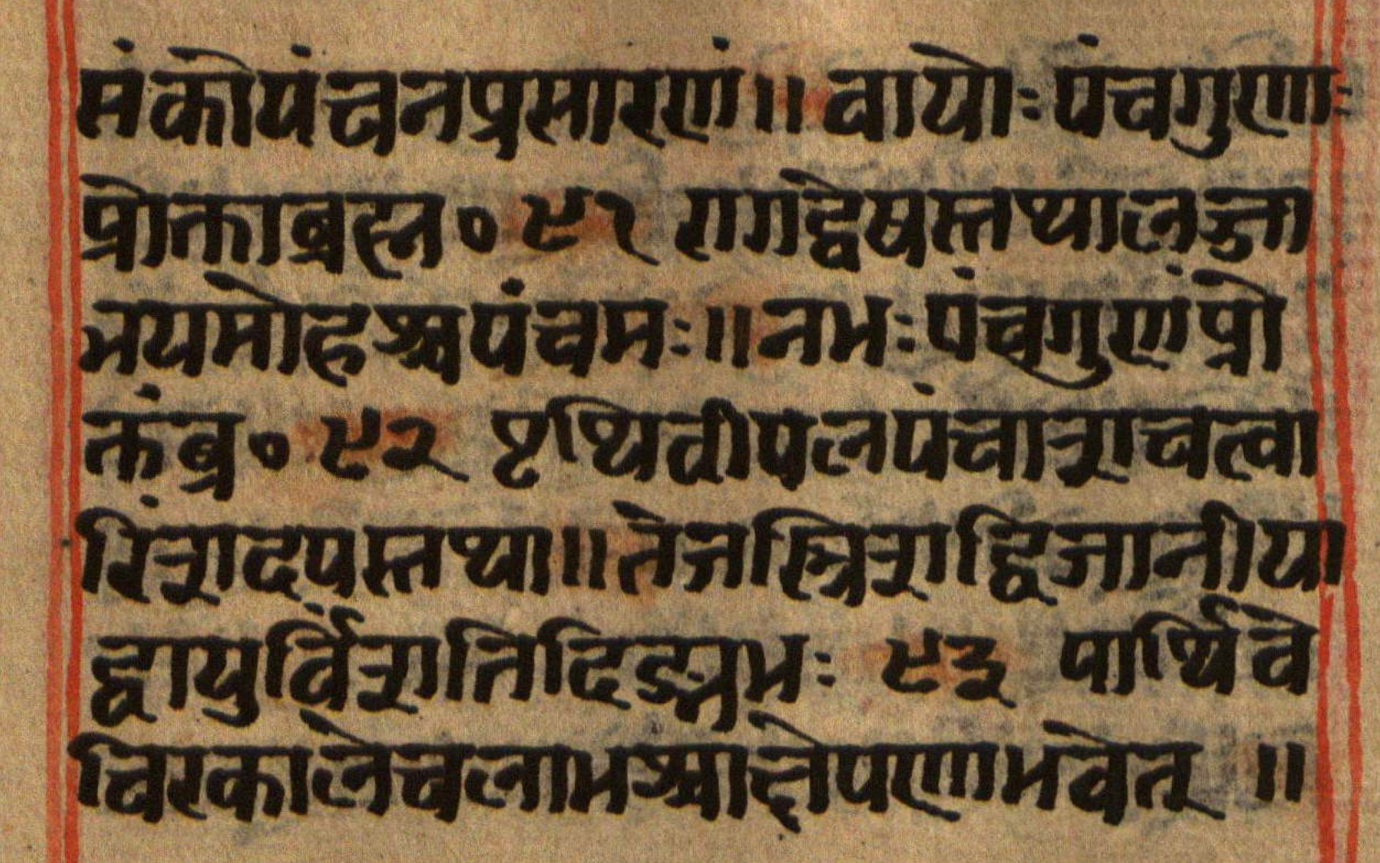 संकोपंचनप्रसारणं॥ वायोः पंचगुणाः
प्रोक्ताब्रह्म० ९१ रागद्वेषस्तथालज्जा
भयमोहश्चपंचमः॥ नभः पंचगुणंप्रो
क्तंब्र० ९२ पृथिवीपलपंचाशचत्वा
रिंशदपस्तथा॥ तेजस्त्रिंशद्विजानीया
द्वायुर्विंशतिदिङ्नभः ९३ पार्थिवे
चिरकालेचलाभश्चाक्षेपणाभवेत् ॥